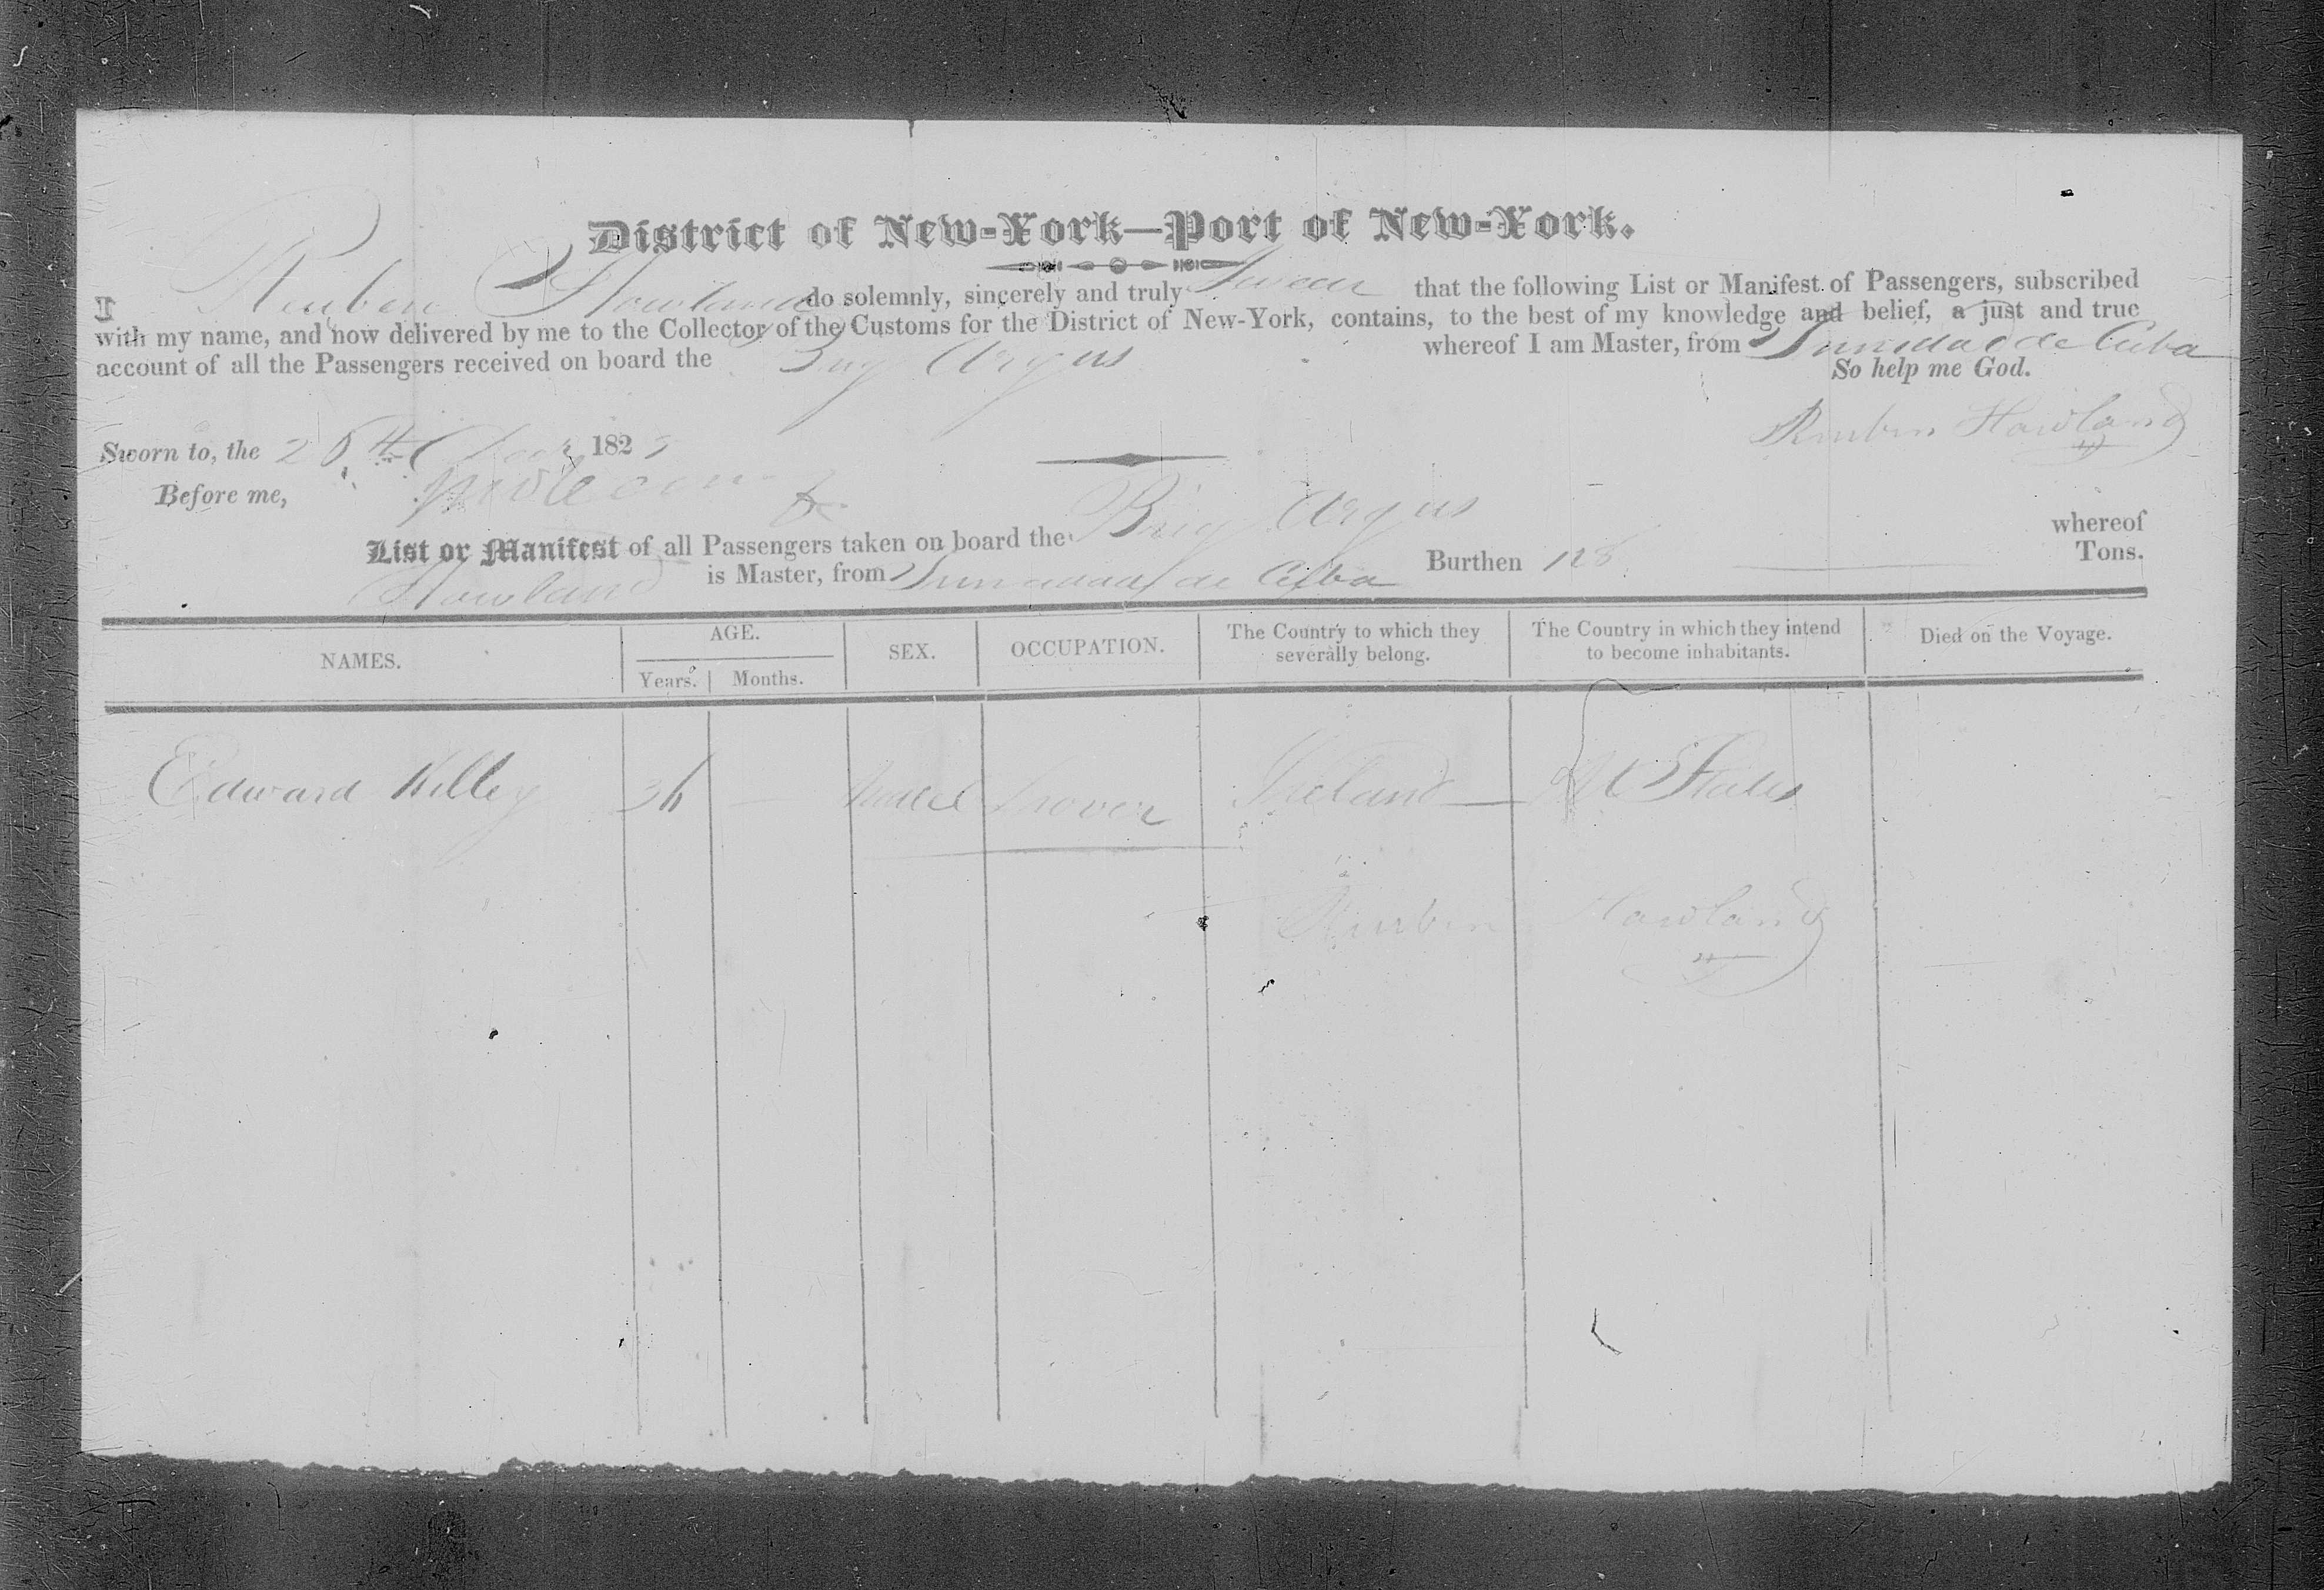 District of New-York—Port of New-York.
I Reuben Howland do solemnly, sincerely and truly Swear that the following List or Manifest of Passengers, subscribed
with my name, and now delivered by me to the Collector of the Customs for the District of New-York, contains, to the best of my knowledge and belief, a just and true
account of all the Passengers received on board the Brig Argus whereof I am Master, from Trinidad de Cuba
So help me God.
Reuben Howland
Sworn to, the 182
Before me,
List or Manifest of all Passengers taken on board the Brig Argus whereof
Howland is Master, from Trinidad de Cuba Burthen 128 Tons.
NAMES. AGE. SEX. OCCUPATION. The Country to which they severally belong. The Country in which they intend to become inhabitants. Died on the Voyage.
Years. Months.
Edward Kelley 36 — Male Ireland — U States
Reuben Howland